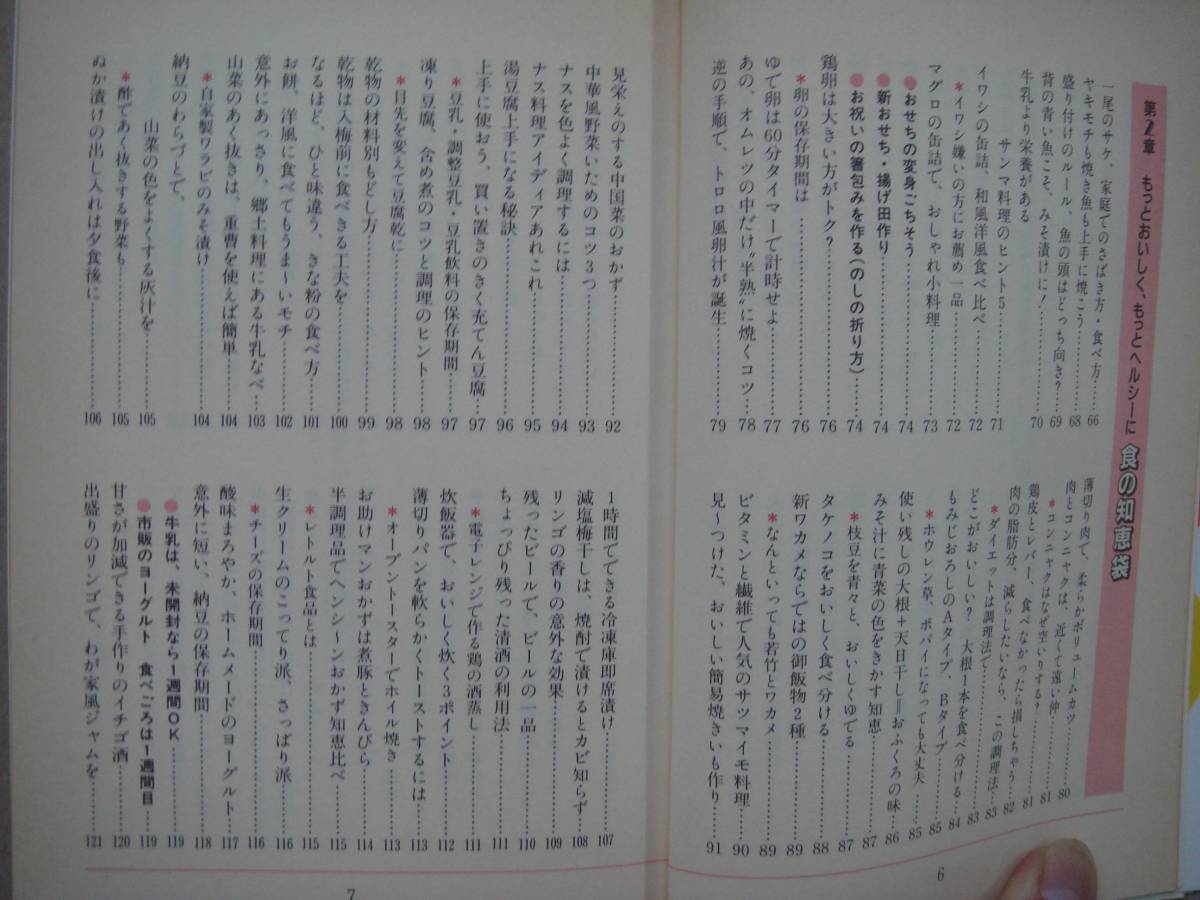 第2章 もっとおいしく、もっとヘルシーに 食の知恵袋
一尾のサケ、家庭でのさばき方・食べ方……66
ヤキモチも焼き魚も上手に焼こう……68
盛り付けのルール、魚の頭はどっち向き?……69
背の青い魚こそ、みそ漬けに!……70
牛乳より栄養がある
サンマ料理のヒント5……71
イワシの缶詰、和風洋風食べ比べ……72
*イワシ嫌いの方にお薦め一品……72
マグロの缶詰で、おしゃれ小料理……73
●おせちの変身ごちそう……74
●新おせち・揚げ田作り……74
●お祝いの箸包みを作る(のしの折り方)……74
鶏卵は大きい方がトク?……76
*卵の保存期間は……76
ゆで卵は60分タイマーで計時せよ……77
あの、オムレツの中だけ〝半熟〟に焼くコツ……78
逆の手順で、トロロ風卵汁が誕生……79
薄切り肉で、柔らかボリュームカツ……80
肉とコンニャクは、近くて遠い仲……81
*コンニャクはなぜ空いりする?……81
鶏皮とレバー、食べなかったら損しちゃう……82
肉の脂肪分、減らしたいなら、この調理法……83
*ダイエットは調理法で……83
どこがおいしい? 大根1本を食べ分ける……84
もみじおろしのAタイプ、Bタイプ……85
*ホウレン草、ポパイになっても大丈夫……85
使い残しの大根+天日干し=おふくろの味……86
みそ汁に青菜の色をきかす知恵……87
*枝豆を青々と、おいしくゆでる……87
タケノコをおいしく食べ分ける……88
新ワカメならではの御飯物2種……89
*なんといっても若竹とワカメ……89
ビタミンと繊維で人気のサツマイモ料理……90
見〜つけた、おいしい簡易焼きいも作り……91
6
見栄えのする中国菜のおかず……92
中華風野菜いためのコツ3つ……93
ナスを色よく調理するには……94
ナス料理アイディアあれこれ……95
湯豆腐上手になる秘訣……96
上手に使おう、買い置きのきく充てん豆腐……97
*豆乳・調整豆乳・豆乳飲料の保存期間……97
凍り豆腐、含め煮のコツと調理のヒント……98
*目先を変えて豆腐乾に……98
乾物の材料別もどし方……99
乾物は入梅前に食べきる工夫を……100
なるほど、ひと味違う、きな粉の食べ方……101
お餅、洋風に食べてもうま〜いモチ……102
意外にあっさり、郷土料理にある牛乳なべ……103
山菜のあく抜きは、重曹を使えば簡単……104
*自家製ワラビのみそ漬け……104
納豆のわらづとで、
山菜の色をよくする灰汁を……105
*酢であく抜きする野菜も……105
ぬか漬けの出し入れは夕食後に……106
1時間でできる冷凍庫即席漬け……107
減塩梅干しは、焼酎で漬けるとカビ知らず……108
リンゴの香りの意外な効果……109
残ったビールで、ビールの一品……110
ちょっぴり残った清酒の利用法……111
*電子レンジで作る鶏の酒蒸し……111
炊飯器で、おいしく炊く3ポイント……112
薄切りパンを軟らかくトーストするには……113
*オーブントースターでホイル焼き……113
お助けマンおかずは煮豚ときんぴら……114
半調理品でヘンシ〜ンおかず知恵比べ……115
*レトルト食品とは……115
生クリームのこってり派、さっぱり派……116
*チーズの保存期間……116
酸味まろやか、ホームメードのヨーグルト……117
意外に短い、納豆の保存期間……118
●牛乳は、未開封なら1週間OK……119
●市販のヨーグルト 食べごろは1週間目……119
甘さが加減できる手作りのイチゴ酒……120
出盛りのリンゴで、わが家風ジャムを……121
7